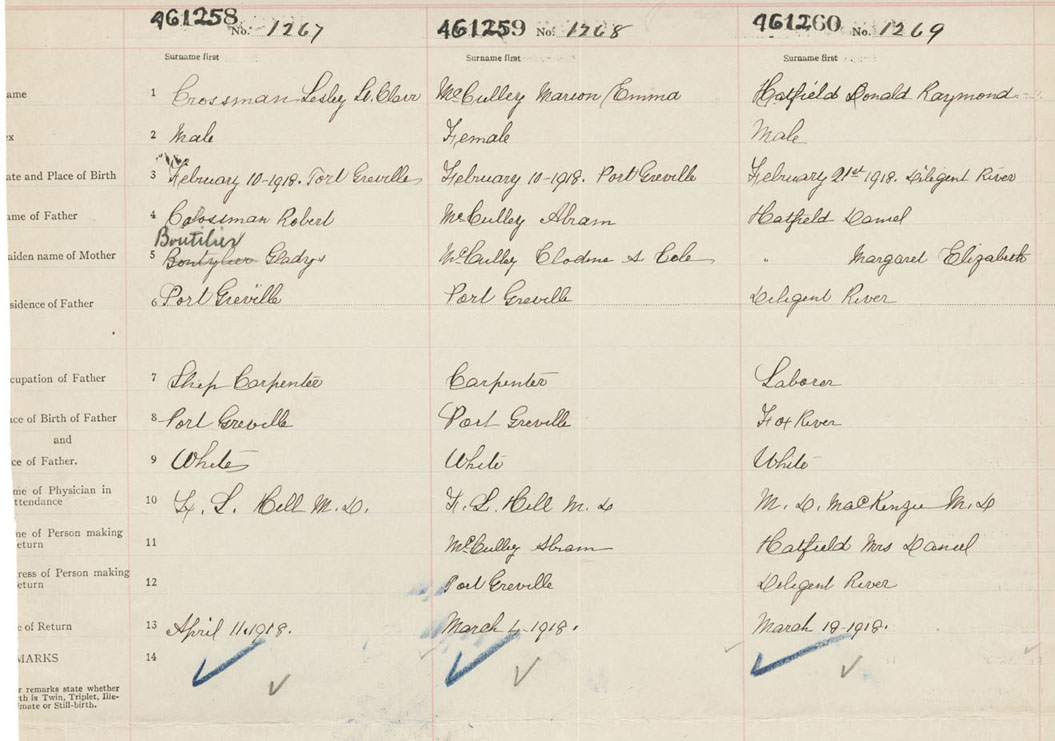 461258 No. 1267 461259 No. 1268 461260 No. 1269
Surname first Surname first Surname first
ame 1 Crossman Lesley St. Clair McCulley Marion Emma Hatfield Donald Raymond
ex 2 Male Female Male
ate and Place of Birth 3 February 10-1918. Port Greville February 10-1918. Port Greville February 21st 1918. Diligent River
ame of Father 4 Crossman Robert McCulley Abram Hatfield Daniel
Boutilier
aiden name of Mother 5 Boutylier Gladys McCulley S Cole " Margaret Elizabeth
sidence of Father 6 Port Greville Port Greville Diligent River
cupation of Father 7 Ship Carpenter Carpenter Laborer
ace of Birth of Father 8 Port Greville Port Greville Fox River
and
ce of Father. 9 White White White
me of Physician in
ttendance 10 L. Hill M.D. L. Hill M. D M. D. MacKenzie M. D
me of Person making
eturn 11 McCulley Abram Hatfield Mrs Daniel
ress of Person making
eturn 12 Port Greville Diligent River
e of Return 13 April 11, 1918. March 4-1918. March 19-1918.
MARKS 14
r remarks state whether
rth is Twin, Triplet, Ille-
imate or Still-birth.